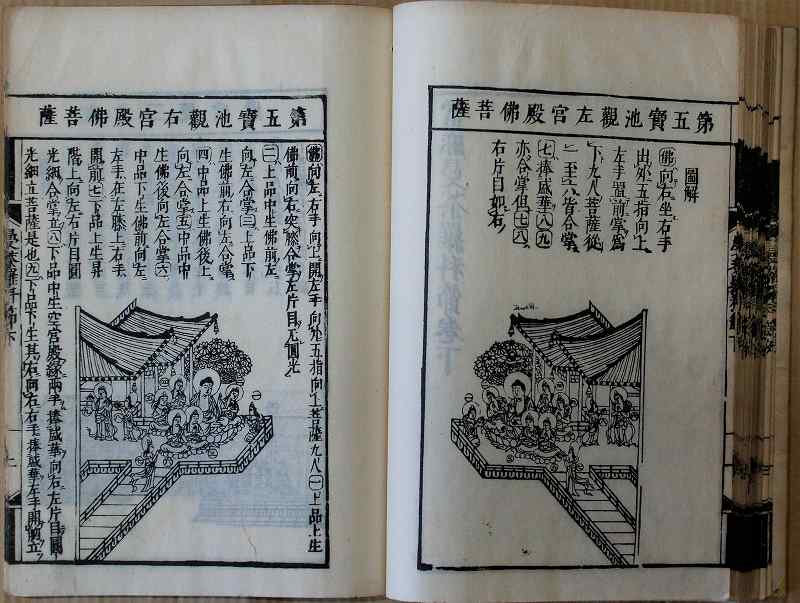 第五寶池觀左宮殿佛菩薩
圖解
佛向右坐右手
出外五指向上
左手置前掌爲
下九人菩薩從
一至六皆合掌
七捧盛華八九
亦合掌但七八
右片目如右
第五寶池觀右宮殿佛菩薩
佛向左右手向上開左手向外五指向上菩薩九人一上品上生
佛前向右突膝合掌左片目尤圓光
二上品中生佛前左
向左合掌三上品下
生佛前右向左合掌
四中品上生佛後上
向左合掌五中品中
生佛後向左合掌六
中品下生佛前向左
左手在左膝上右手
開前七下品上生昇
階上向左右片目圓
光細合掌立八下品中生空宮殿緣兩手捧盛華向右左片目圓
光細立菩薩是也九下品下生其右向右右手捧盛華左手開前立
曼荼羅科節下